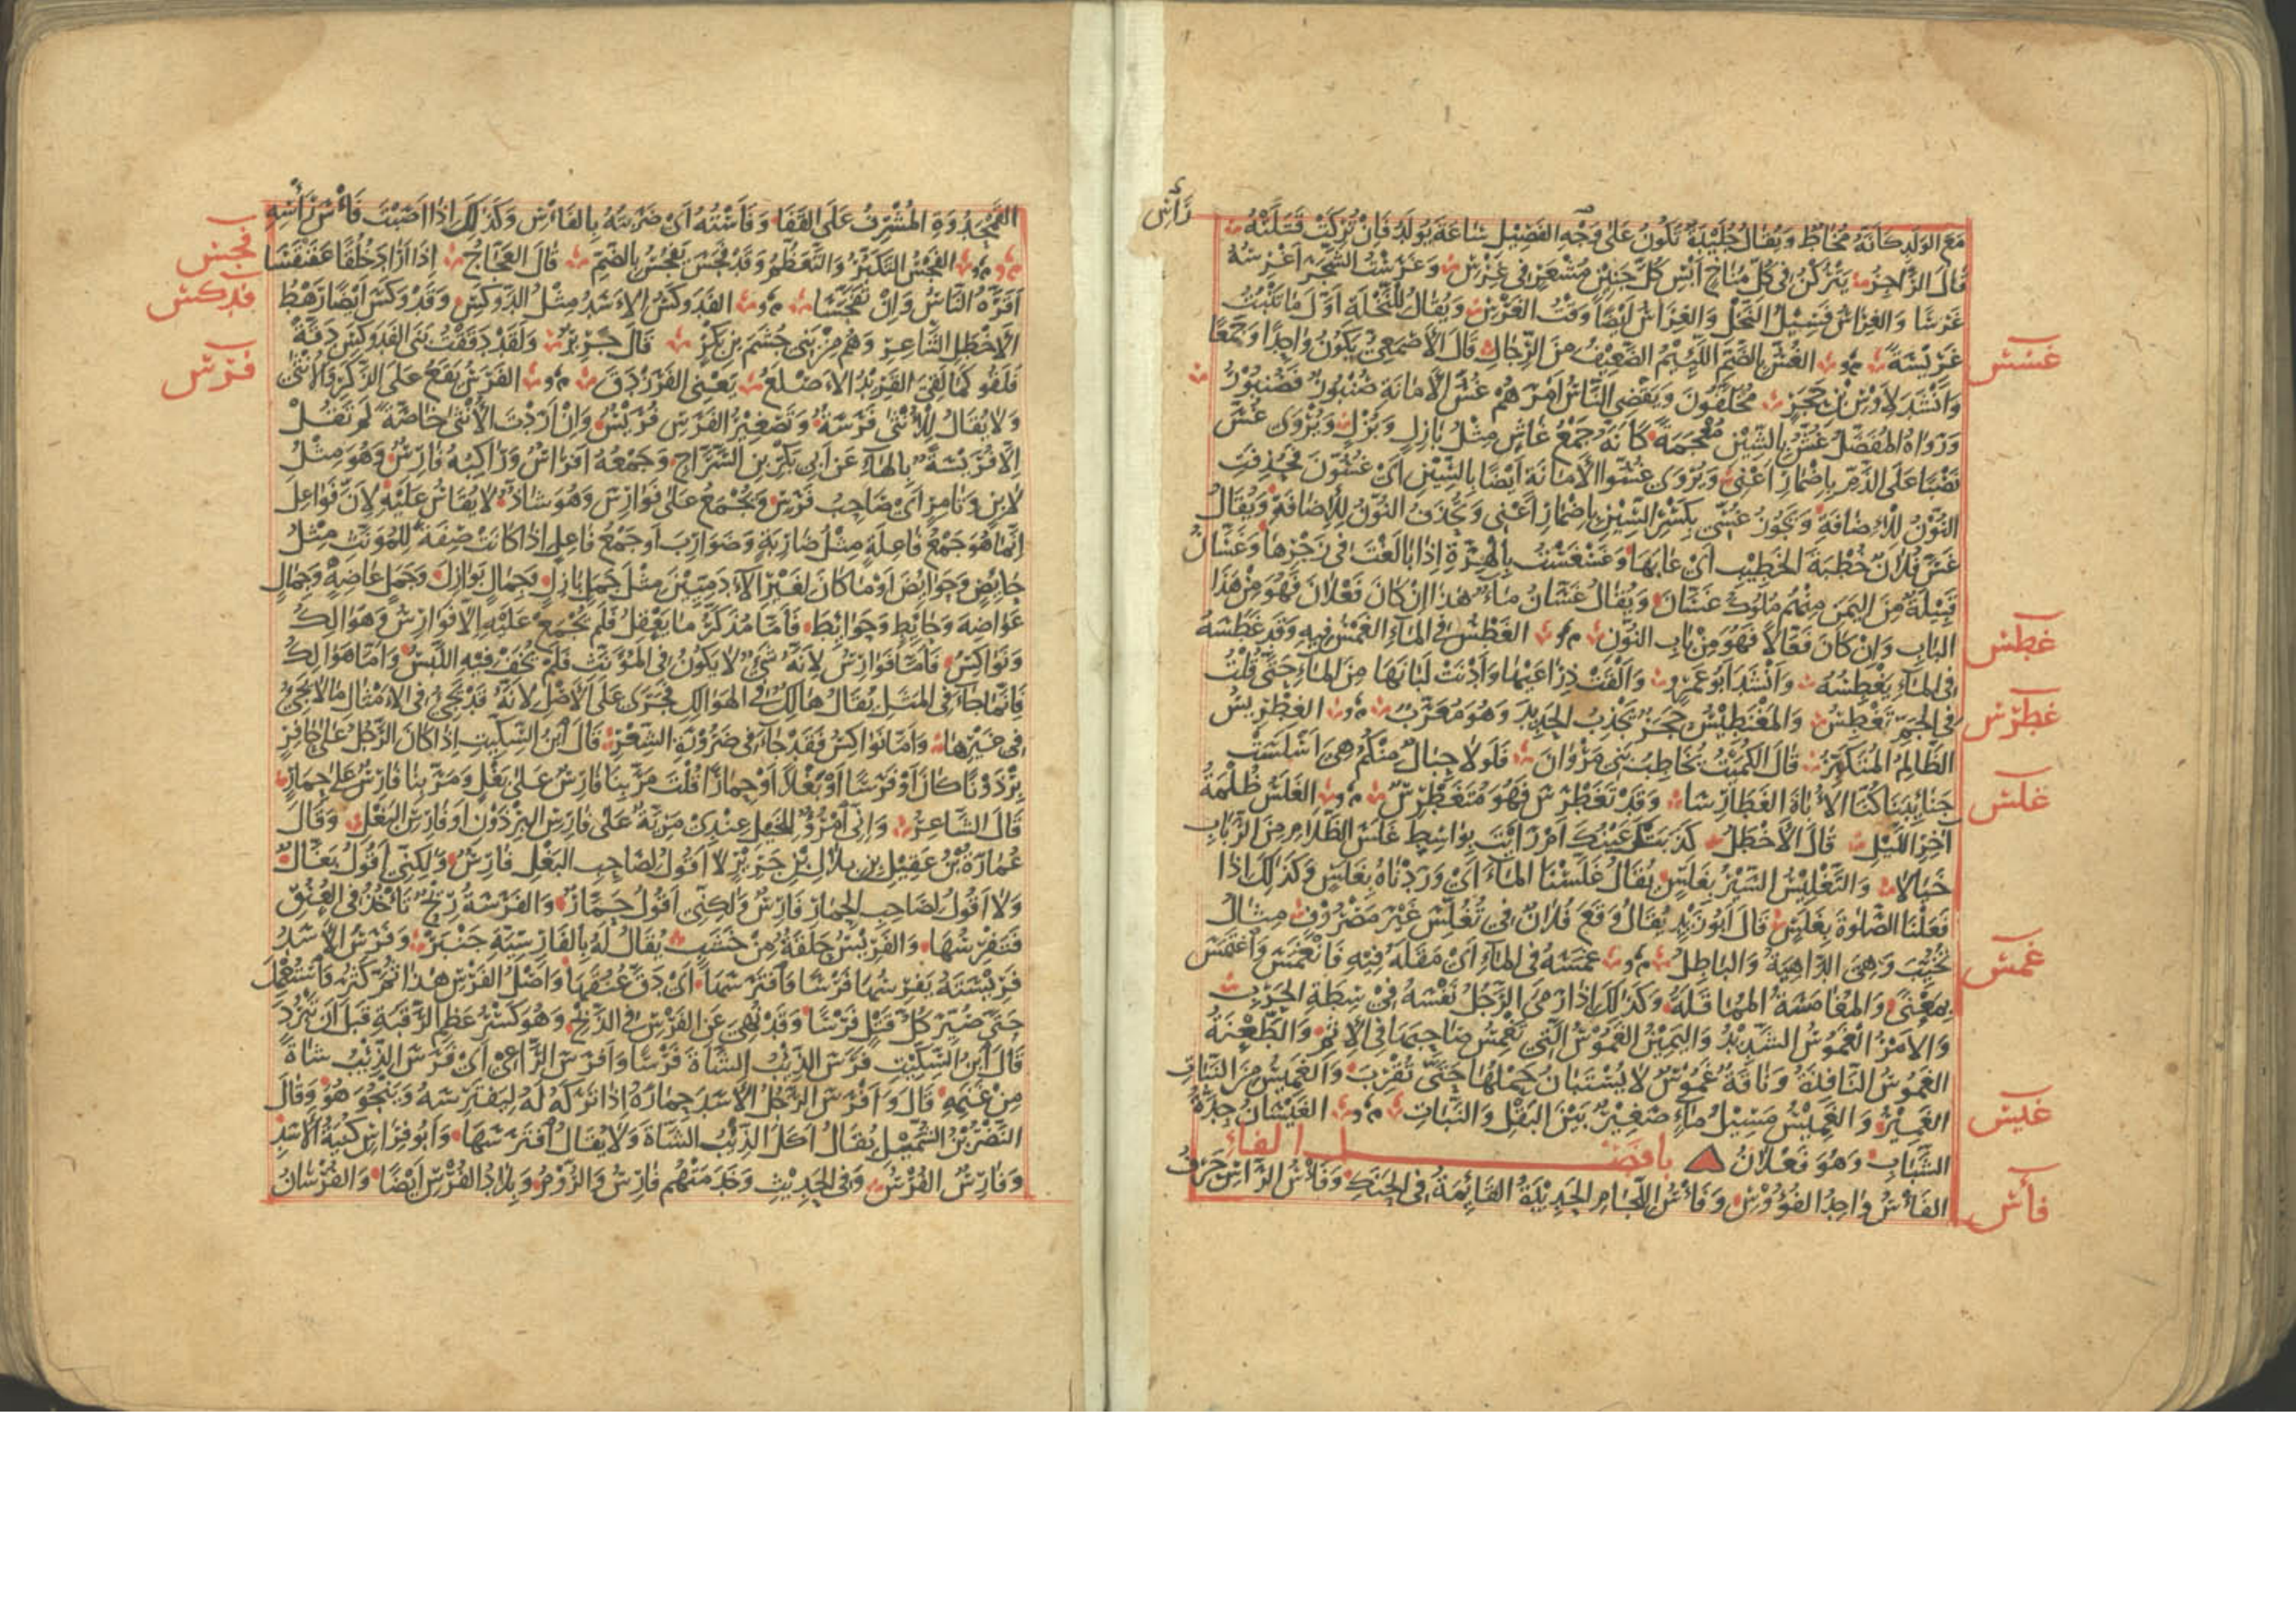 مَعَ الوَلَدِ كَأَنَّهُ مُخَاطٌ وَيُقَالُ جُلَيْدَةٌ تَكُونُ عَلَى وَجْهِ الفَصِيْلِ سَاعَةَ يُوْلَدُ فَاِنْ تُرِكَتْ قَتَلَتْهُ
قَالَ الرَّاجِزُ يَتْرُكْنَ فِي كُلِّ مُنَاخٍ أَبْسِ كُلَّ جَنِيْنٍ مُشْعَرٍ فِي غِرْسِ وَغَرَسْتُ الشَّجَرَ اَغْرِسُهُ
غَرْسًا وَالغِرَاسُ فَسِيْلُ النَّخْلِ وَالغِرَاسُ اَيْضًا وَقْتُ الغَرْسِ وَيُقَالُ لِلنَّخْلَةِ اَوَّلَ مَا تَنْبُتُ
غَرِيْسَةٌ الغُسُّ بِالضَّمِّ اللَّئِيْمُ الضَّعِيْفُ مِنَ الرِّجَالِ قَالَ الاَصْمَعِيُّ يَكُونُ وَاحِدًا وَجَمْعًا
غسس
وَاَنْشَدَ لِاَوْسِ بْنِ حَجَرٍ مُخَلَّفُونَ وَيَقْضِي النَّاسُ اَمْرَهُمُ غُسُّ الاَمَانَةِ صُنْبُورٌ فَصُنْبُوْرُ
وَرَوَاهُ المُفَضَّلُ غُشُّ بِالشِّيْنِ مُعْجَمَةً كَاَنَّهُ جَمْعُ غَاشٍّ مِثْلُ بَازِلٍ وَبُزْلٍ وَيُرْوَى غُسَّ
نَصْبًا عَلَى الذَّمِّ بِاِضْمَارِ اَعْنِي وَيُرْوَى غُسُّوا الاَمَانَةِ اَيْضًا بِالسِّيْنِ اَيْ غُسُّونَ فَحُذِفَتِ
النُّوْنُ لِلاِضَافَةِ وَيَجُوزُ غُسِّي بِكَسْرِ السِّيْنِ بِاِضْمَارِ اَعْنِي وَتُحْذَفُ النُّوْنُ لِلاِضَافَةِ وَيُقَالُ
غَسَّ فُلَانٌ خُطْبَةَ الخَطِيْبِ اَيْ عَابَهَا وَغَسْغَسْتُ بِالهِرَّةِ اِذَا بَالَغْتَ فِي زَجْرِهَا وَغَسَّانُ
قَبِيْلَةٌ مِنَ اليَمَنِ مِنْهُمْ مُلُوكُ غَسَّانَ وَيُقَالُ غَسَّانُ مَاءٌ هٰذَا اِنْ كَانَ فَعْلَانَ فَهُوَ مِنْ هٰذَا
البَابِ وَاِنْ كَانَ فَعَّالًا فَهُوَ مِنْ بَابِ النُّوْنِ الغَطْسُ فِي المَاءِ الغَمْسُ فِيهِ وَقَدْ غَطَسَهُ
غطس
فِي المَاءِ يَغْطِسُهُ وَاَنْشَدَ اَبُو عَمْرٍو وَاَلْقَتْ ذِرَاعَيْهَا وَاَدْنَتْ لَبَانَهَا مِنَ المَاءِ حَتَّى قُلْتُ
فِي الجَمِّ تَغْطِسُ وَالمَغْنَطِيْسُ حَجَرٌ يَجْذِبُ الحَدِيْدَ وَهُوَ مُعَرَّبٌ الغِطْرِيْسُ
غطرس
الظَّالِمُ المُتَكَبِّرُ قَالَ الكُمَيْتُ يُخَاطِبُ بَنِي مَرْوَانَ فَلَوْلَا حِبَالٌ مِنْكُمُ هِيَ اَسْلَسَتْ
جَنَائِبَنَا كُنَّا الاُبَاةَ الغَطَارِسَا وَقَدْ تَغَطْرَسَ فَهُوَ مُتَغَطْرِسٌ الغَلَسُ ظُلْمَةُ
غلس
آخِرِ اللَّيْلِ قَالَ الاَخْطَلُ كَذَبَتْكَ عَيْنُكَ اَمْ رَاَيْتَ بِوَاسِطٍ غَلَسَ الظَّلَامِ مِنَ الرَّبَابِ
خَيَالَا وَالتَّغْلِيْسُ السَّيْرُ بِغَلَسٍ يُقَالُ غَلَّسْنَا المَاءَ اَيْ وَرَدْنَاهُ بِغَلَسٍ وَكَذَلِكَ اِذَا
فَعَلْنَا الصَّلٰوةَ بِغَلَسٍ قَالَ اَبُو زَيْدٍ يُقَالُ وَقَعَ فُلَانٌ فِي تُغُلِّسَ غَيْرَ مَصْرُوْفٍ مِثَالُ
تُخُيِّبَ وَهِيَ الدَّاهِيَةُ وَالبَاطِلُ غَمَسَهُ فِي المَاءِ اَيْ مَقَلَهُ فِيْهِ فَانْغَمَسَ وَاغْتَمَسَ
غمس
بِمَعْنًى وَالمُغَامَسَةُ المُمَاقَلَةُ وَكَذَلِكَ اِذَا رَمَى الرَّجُلُ نَفْسَهُ فِي سِطَةِ الحَرْبِ
وَالاَمْرُ الغَمُوسُ الشَّدِيْدُ وَاليَمِيْنُ الغَمُوسُ الَّتِي تَغْمِسُ صَاحِبَهَا فِي الاِثْمِ وَالطَّعْنَةُ
الغَمُوسُ النَّافِذَةُ وَنَاقَةٌ غَمُوسٌ لَا يُسْتَبَانُ حَمْلُهَا حَتَّى تُقْرِبَ وَالغَمِيْسُ مِنَ النَّبَاتِ
الغَمِيْرُ وَالغَمِيْسُ مَسِيْلُ مَاءٍ صَغِيْرٌ بَيْنَ البَقْلِ وَالنَّبَاتِ الغَيْسَانُ حِدَّةُ
غيس
الشَّبَابِ وَهُوَ فَعْلَانُ فصل الفاء
الفَأْسُ وَاحِدُ الفُؤُوْسِ وَفَأْسُ اللِّجَامِ الحَدِيْدَةُ القَائِمَةُ فِي الحَنَكِ وَفَأْسُ الرَّاْسِ حَرْفُ
فأس
القَمَحْدُوَةِ المُشْرِفُ عَلَى القَفَا وَفَأَسْتُهُ اَيْ ضَرَبْتُهُ بِالفَأْسِ وَكَذَلِكَ اِذَا اَصَبْتَ فَأْسَ رَأْسِهِ
الفَجْسُ التَّكَبُّرُ وَالتَّعَظُّمُ وَقَدْ فَجَسَ يَفْجُسُ بِالضَّمِّ قَالَ العَجَّاجُ اِذَا اَرَادَ خُلُقًا عَفَنْقَسَا
فجس
اَقَرَّهُ النَّاسُ وَاِنْ تَفَجَّسَا الفَدَوْكَسُ الاَسَدُ مِثْلُ الدَّوْكَسِ وَفَدَوْكَسُ اَيْضًا رَهْطُ
فدكس
الاَخْطَلِ الشَّاعِرِ وَهُمْ مِنْ بَنِي جُشَمَ بْنِ بَكْرٍ قَالَ جَرِيْرٌ وَلَقَدْ دَقَقْتُ بَنِي الفَدَوْكَسِ دَقَّةً
فَلَقُوا كَمَا لَقِيَ القُرَيْدُ الاَصْلَعُ يَعْنِي الفَرَزْدَقَ الفَرَسُ يَقَعُ عَلَى الذَّكَرِ وَالاُنْثَى
فرس
وَلَا يُقَالُ لِلاُنْثَى فَرَسَةٌ وَتَصْغِيْرُ الفَرَسِ فُرَيْسٌ وَاِنْ اَرَدْتَ الاُنْثَى خَاصَّةً لَمْ تَقُلْ
اِلَّا فُرَيْسَةٌ بِالهَاءِ عَنْ اَبِي بَكْرِ بْنِ السَّرَّاجِ وَجَمْعُهُ اَفْرَاسٌ وَرَاكِبُهُ فَارِسٌ وَهُوَ مِثْلُ
لَابِنٍ وَتَامِرٍ اَيْ صَاحِبُ فَرَسٍ وَيُجْمَعُ عَلَى فَوَارِسَ وَهُوَ شَاذٌّ لَا يُقَاسُ عَلَيْهِ لِاَنَّ فَوَاعِلَ
اِنَّمَا هُوَ جَمْعُ فَاعِلَةٍ مِثْلُ ضَارِبَةٍ وَضَوَارِبَ اَوْ جَمْعُ فَاعِلٍ اِذَا كَانَتْ صِفَةً لِلْمُؤَنَّثِ مِثْلُ
حَايِضٍ وَحَوَايِضَ اَوْ مَا كَانَ لِغَيْرِ الآدَمِيِّيْنَ مِثْلُ جَمَلٍ بَازِلٍ وَجِمَالٍ بَوَازِلَ وَجَمَلٍ عَاضِهٍ وَجِمَالٍ
عَوَاضِهَ وَحَائِطٍ وَحَوَائِطَ فَاَمَّا مُذَكَّرُ مَا يَعْقِلُ فَلَمْ يُجْمَعْ عَلَيْهِ اِلَّا فَوَارِسُ وَهَوَالِكُ
وَنَوَاكِسُ فَاَمَّا فَوَارِسُ لِاَنَّهُ شَيْءٌ لَا يَكُونُ فِي المُؤَنَّثِ فَلَمْ يُخَفْ فِيْهِ اللَّبْسُ وَاَمَّا هَوَالِكُ
فَاِنَّمَا جَاءَ فِي المَثَلِ يُقَالُ هَالِكٌ فِي الهَوَالِكِ فَجَرَى عَلَى الاَصْلِ لِاَنَّهُ قَدْ يَجِيْءُ فِي الاَمْثَالِ مَا لَا يَجِيْءُ
فِي غَيْرِهَا وَاَمَّا نَوَاكِسُ فَقَدْ جَاءَ فِي ضَرُوْرَةِ الشِّعْرِ قَالَ ابْنُ السِّكِّيْتِ اِذَا كَانَ الرَّجُلُ عَلَى حَافِرٍ
بِرْذَوْنًا كَانَ اَوْ فَرَسًا اَوْ بَغْلًا اَوْ حِمَارًا قُلْتَ مَرَّ بِنَا فَارِسٌ عَلَى بَغْلٍ وَمَرَّ بِنَا فَارِسٌ عَلَى حِمَارٍ
قَالَ الشَّاعِرُ وَاِنِّي امْرُؤٌ لِلْخَيْلِ عِنْدِيَ مَزِيَّةٌ عَلَى فَارِسِ البِرْذَوْنِ اَوْ فَارِسِ البَغْلِ وَقَالَ
عُمَارَةُ بْنُ عَقِيْلِ بْنِ بِلَالِ بْنِ جَرِيْرٍ لَا اَقُولُ لِصَاحِبِ البَغْلِ فَارِسٌ وَلٰكِنِّي اَقُولُ بَغَّالٌ
وَلَا اَقُولُ لِصَاحِبِ الحِمَارِ فَارِسٌ وَلٰكِنِّي اَقُولُ حَمَّارٌ وَالفَرْسَةُ رِيْحٌ تَأْخُذُ فِي العُنُقِ
فَتَفْرِسُهَا وَالفَرِيْسُ حَلْقَةٌ مِنْ خَشَبٍ يُقَالُ لَهُ بِالفَارِسِيَّةِ جَنْبَرْ وَفَرَسَ الاَسَدُ
فَرِيْسَتَهُ يَفْرِسُهَا فَرْسًا وَافْتَرَسَهَا اَيْ دَقَّ عُنُقَهَا وَاَصْلُ الفَرْسِ هٰذَا ثُمَّ كَثُرَ وَاسْتُعْمِلَ
حَتَّى صُيِّرَ كُلُّ قَتْلٍ فَرْسًا وَقَدْ نُهِيَ عَنِ الفَرْسِ فِي الذَّبْحِ وَهُوَ كَسْرُ عَظْمِ الرَّقَبَةِ قَبْلَ اَنْ تَبْرُدَ
قَالَ ابْنُ السِّكِّيْتِ فَرَسَ الذِّئْبُ الشَّاةَ فَرْسًا وَاَفْرَسَ الرَّاعِي اَيْ فَرَسَ الذِّئْبُ شَاةً
مِنْ غَنَمِهِ قَالَ وَاَفْرَسَ الرَّجُلُ الاَسَدَ حِمَارَهُ اِذَا تَرَكَهُ لَهُ لِيَفْتَرِسَهُ وَيَنْجُوَ هُوَ وَقَالَ
النَّضْرُ بْنُ الشُّمَيْلِ يُقَالُ اَكَلَ الذِّئْبُ الشَّاةَ وَلَا يُقَالُ افْتَرَسَهَا وَاَبُو فِرَاسٍ كُنْيَةُ الاَسَدِ
وَفَارِسُ الفُرْسُ وَفِي الحَدِيْثِ وَخَدَمَتْهُمْ فَارِسُ وَالرُّوْمُ وَبِلَادُ الفُرْسِ اَيْضًا وَالفُرْسَانُ